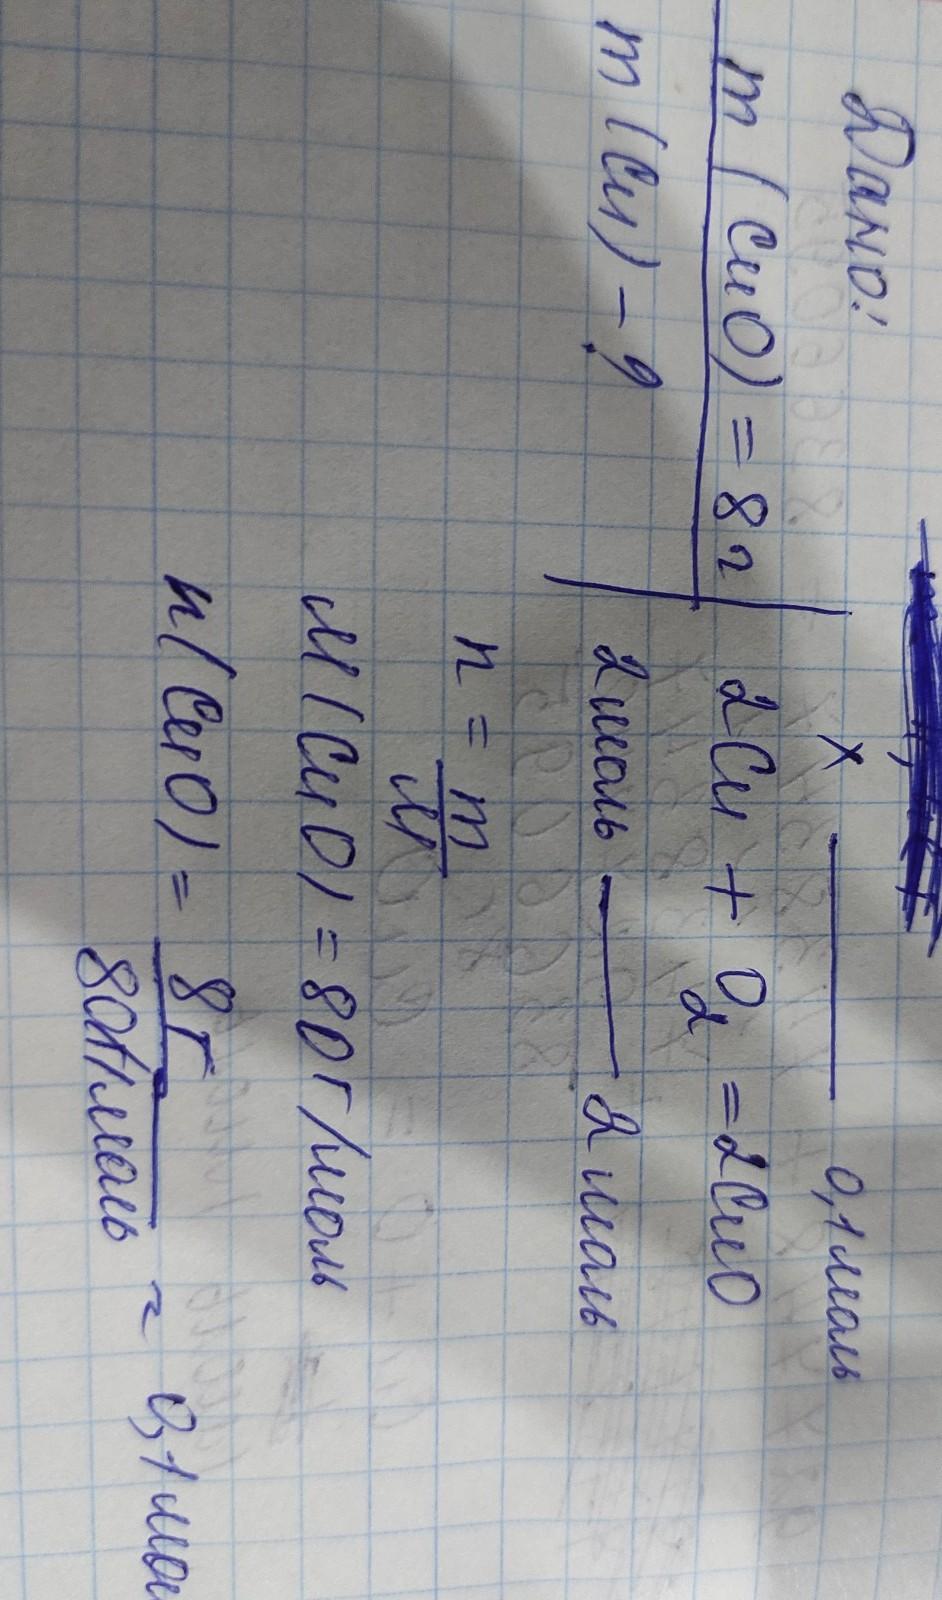 Дано:
m (CuO) = 8г
m (Cu) - ?
x — 0,1 моль
2Cu + O₂ = 2CuO
2 моль — 2 моль
n = m/M
M(CuO) = 80 г/моль
n(CuO) = 8г / 80г/моль ≈ 0,1 мол